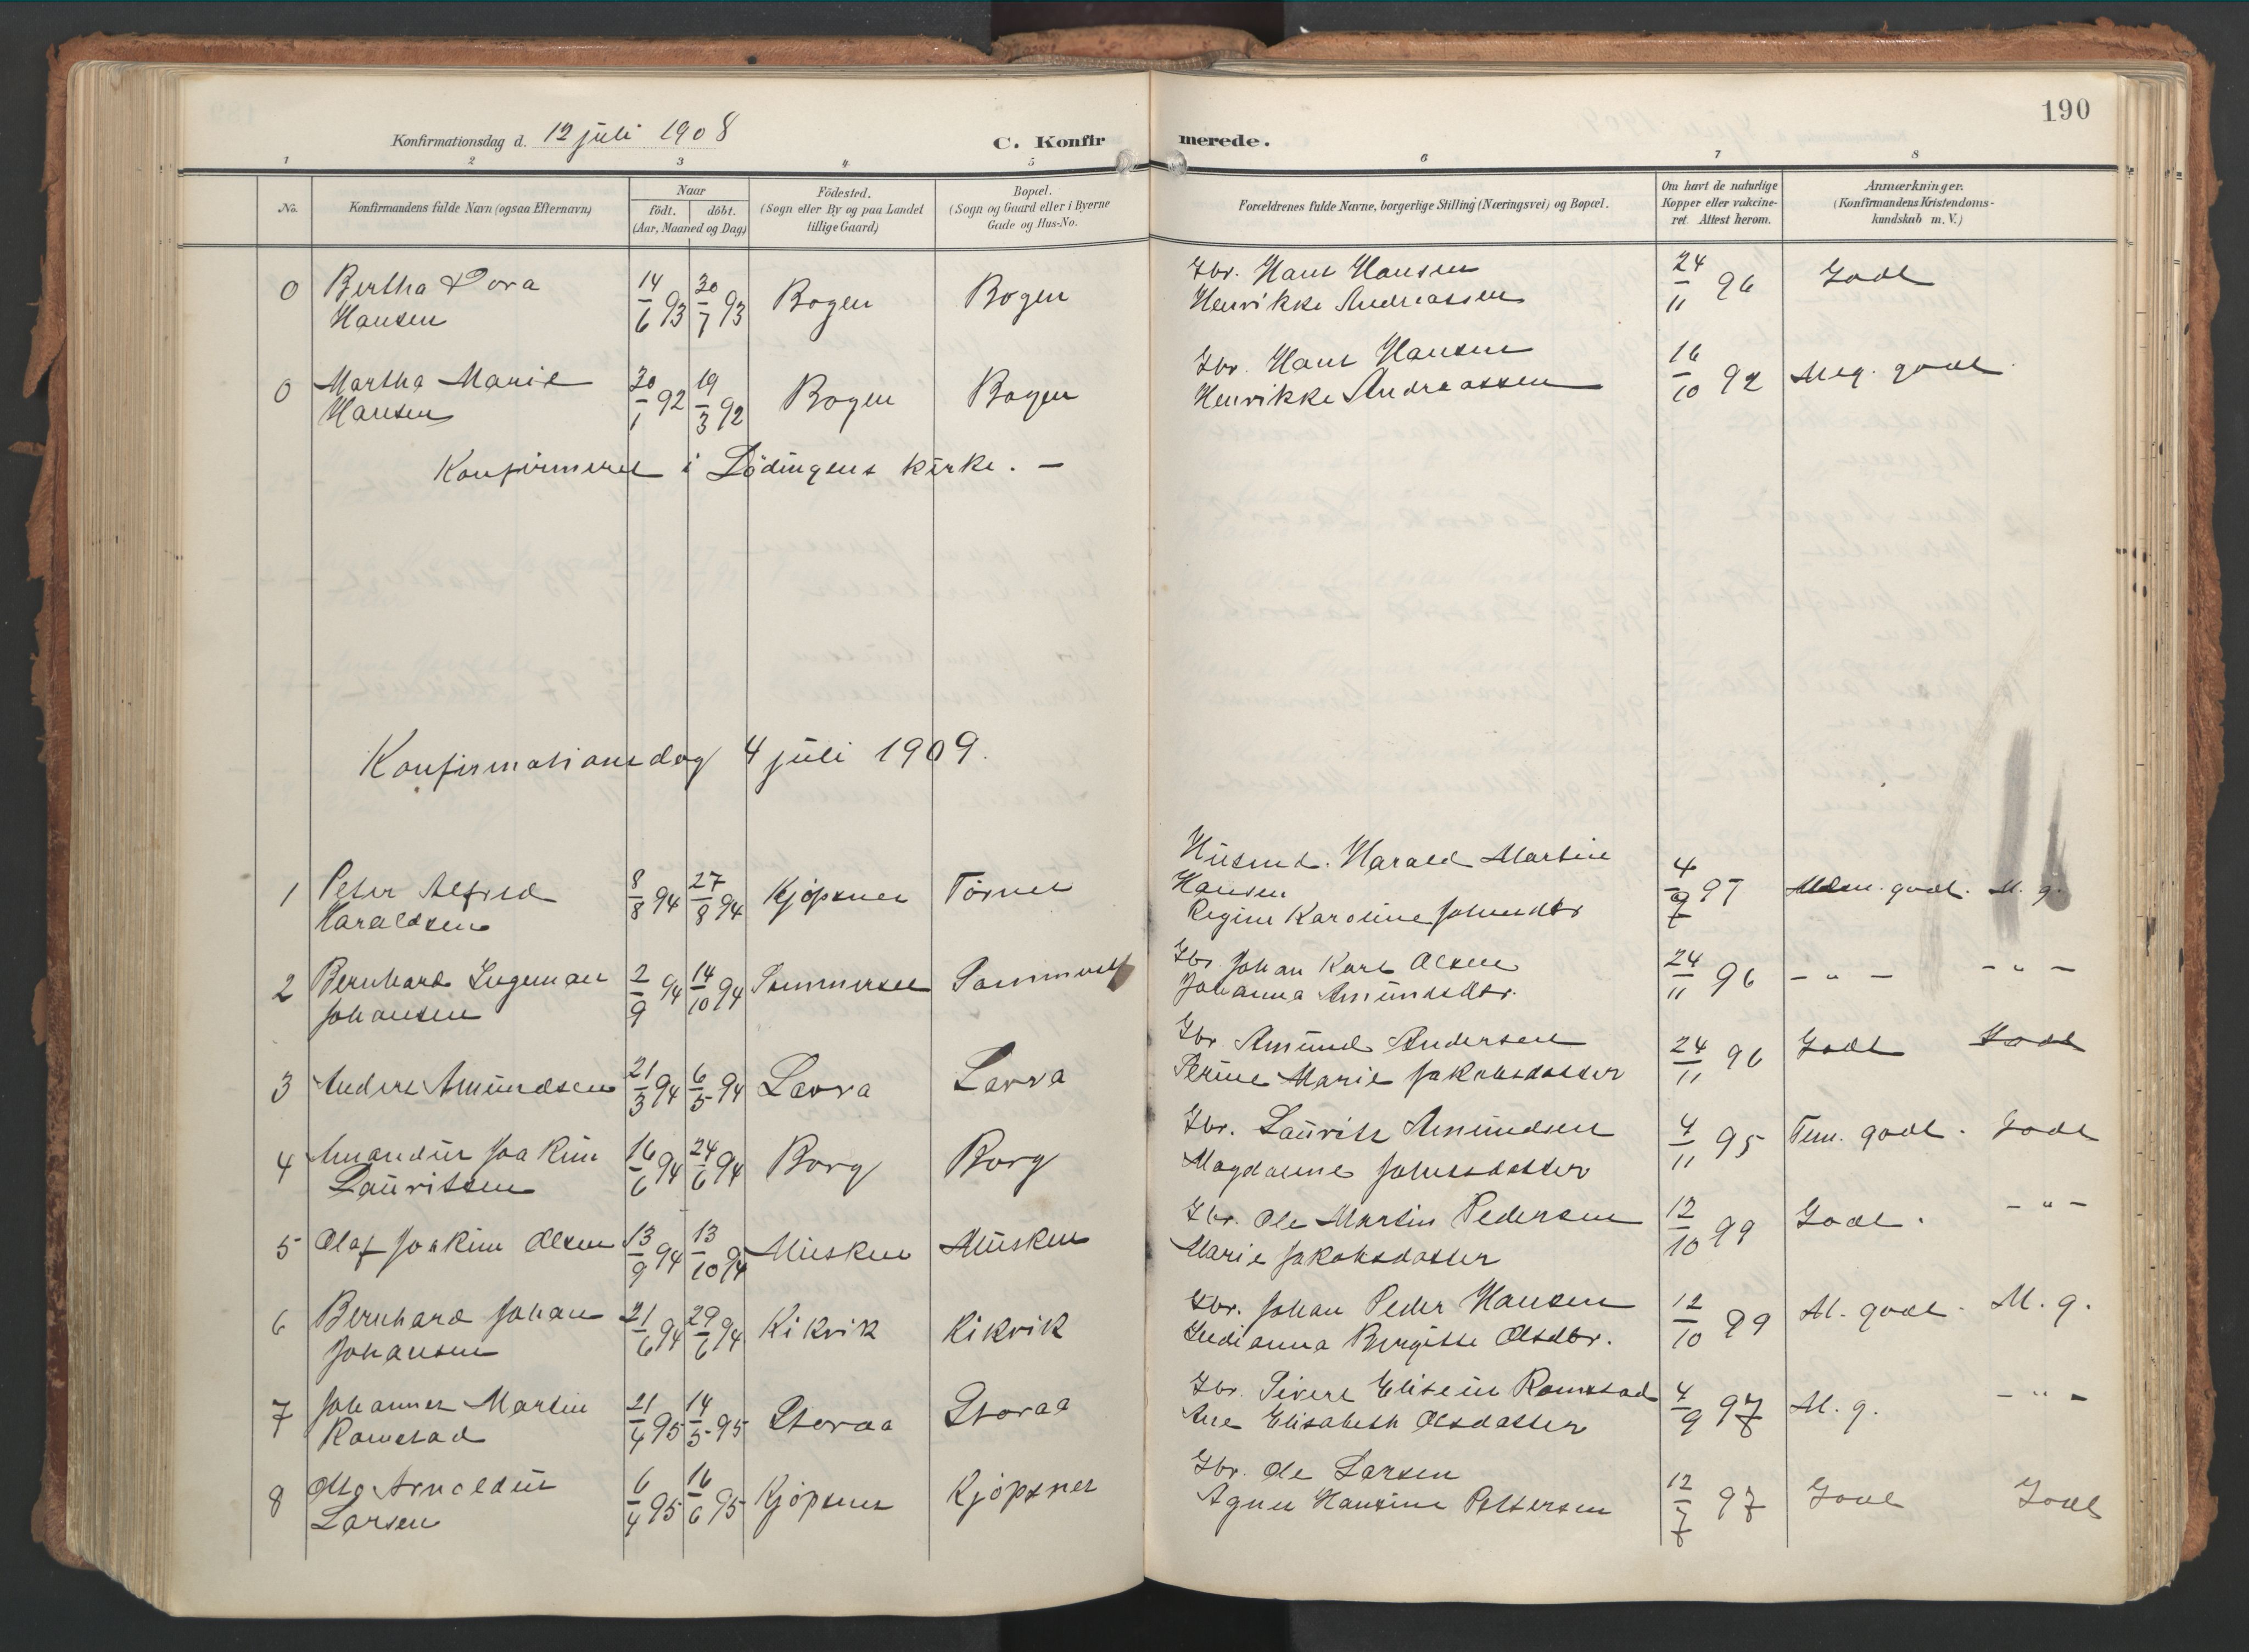 190
Konfirmationsdag d. 12 juli 1908
C. Konfirmerede.
1 2 3 4 5 6 7 8
No.
Konfirmandens fulde Navn (ogsaa Efternavn)
Naar
födt. döbt.
(Aar, Maaned og Dag)
Födested.
(Sogn eller By og paa Landet
tillige Gaard)
Bopæl.
(Sogn og Gaard eller i Byerne
Gade og Hus-No.
Forældrenes fulde Navne, borgerlige Stilling (Næringsvei) og Bopæl.
Om havt de naturlige
Kopper eller vakcine-
ret. Attest herom.
Anmærkninger.
(Konfirmandens Kristendoms-
kundskab m. V.)
0 Bertha Dora 14/6 93 30/7 93 Bogen Bogen Gbr. Hans Hansen 24/11 96 Godt
Hansen Henrikke Andreassen
0 Martha Marie 30/1 92 19/3 92 Bogen Bogen Gbr. Hans Hansen 16/10 92 Meg. godt.
Hansen Henrikke Andreassen
Konfirmeret i Lödingens kirke. —
Konfirmationsdag 4 juli 1909.
1 Peter Alfred 8/8 94 27/8 94 Kjöpsnes Törnes Husmd. Harald Martin 4/9 97 godt. M. g.
Haraldsen Hansen
Regine Karoline
2 Bernhard Ingeman 2/9 94 14/10 94 Sommerset Sommerset Gbr. Johan Karl Olsen 24/11 96 - " - - " -
Johansen Johanna Amundsdtr.
3 Anders Amundsen 21/3 94 6/5 94 Lavra Lavra Gbr. Amund Andersen 24/11 96 Godt Godt
Perine Marie Jakobsdatter
4 Amandus Joakim 16/6 94 24/6 94 Borg Borg Gbr. Laurits Amundsen 4/11 95 Tem. godt. Godt
Lauritsen Magdalene
5 Olaf Joakim Olsen 13/9 94 13/10 94 Musken Musken Gbr. Ole Martin Pedersen 12/10 99 Godt. - " -
Marie Jakobsdatter
6 Bernhard Johan 21/6 94 29/6 94 Kikvik Kikvik Gbr. Johan Peder Hansen 12/10 99 M. godt. M. g.
Johansen Indianna Bergitte Olsdtr.
7 Johannes Martin 21/4 95 14/5 95 Storaa Storaa Gbr. Sivert Eliseus Ramstad 4/9 97 M. g. - " -
Ramstad Ane Elisabeth Olsdatter
8 Otto Arnoldus 6/4 95 16/6 95 Kjöpsnes Kjöpsnes Gbr. Ole Larsen 12/7 97 Godt Godt
Larsen Agnes Hansine Pettersen